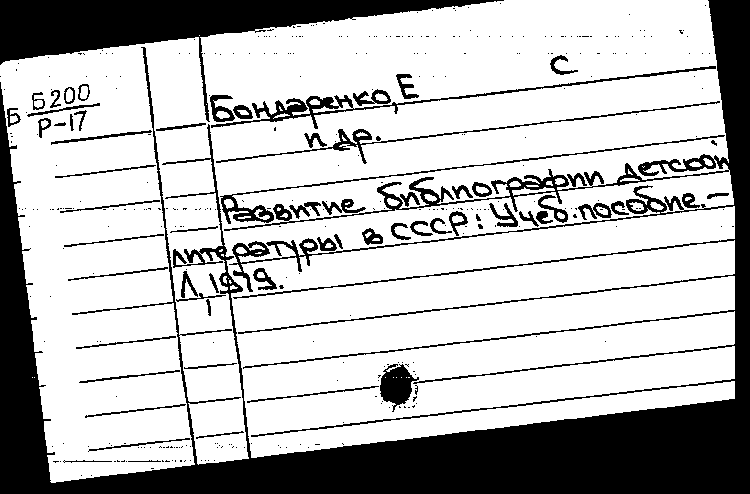 С
Б Б200
Р-17
Бондаренко, Е
и др.
Развитие библиографии детской
литературы в СССР: Учеб. пособие.—
Л., 1979.